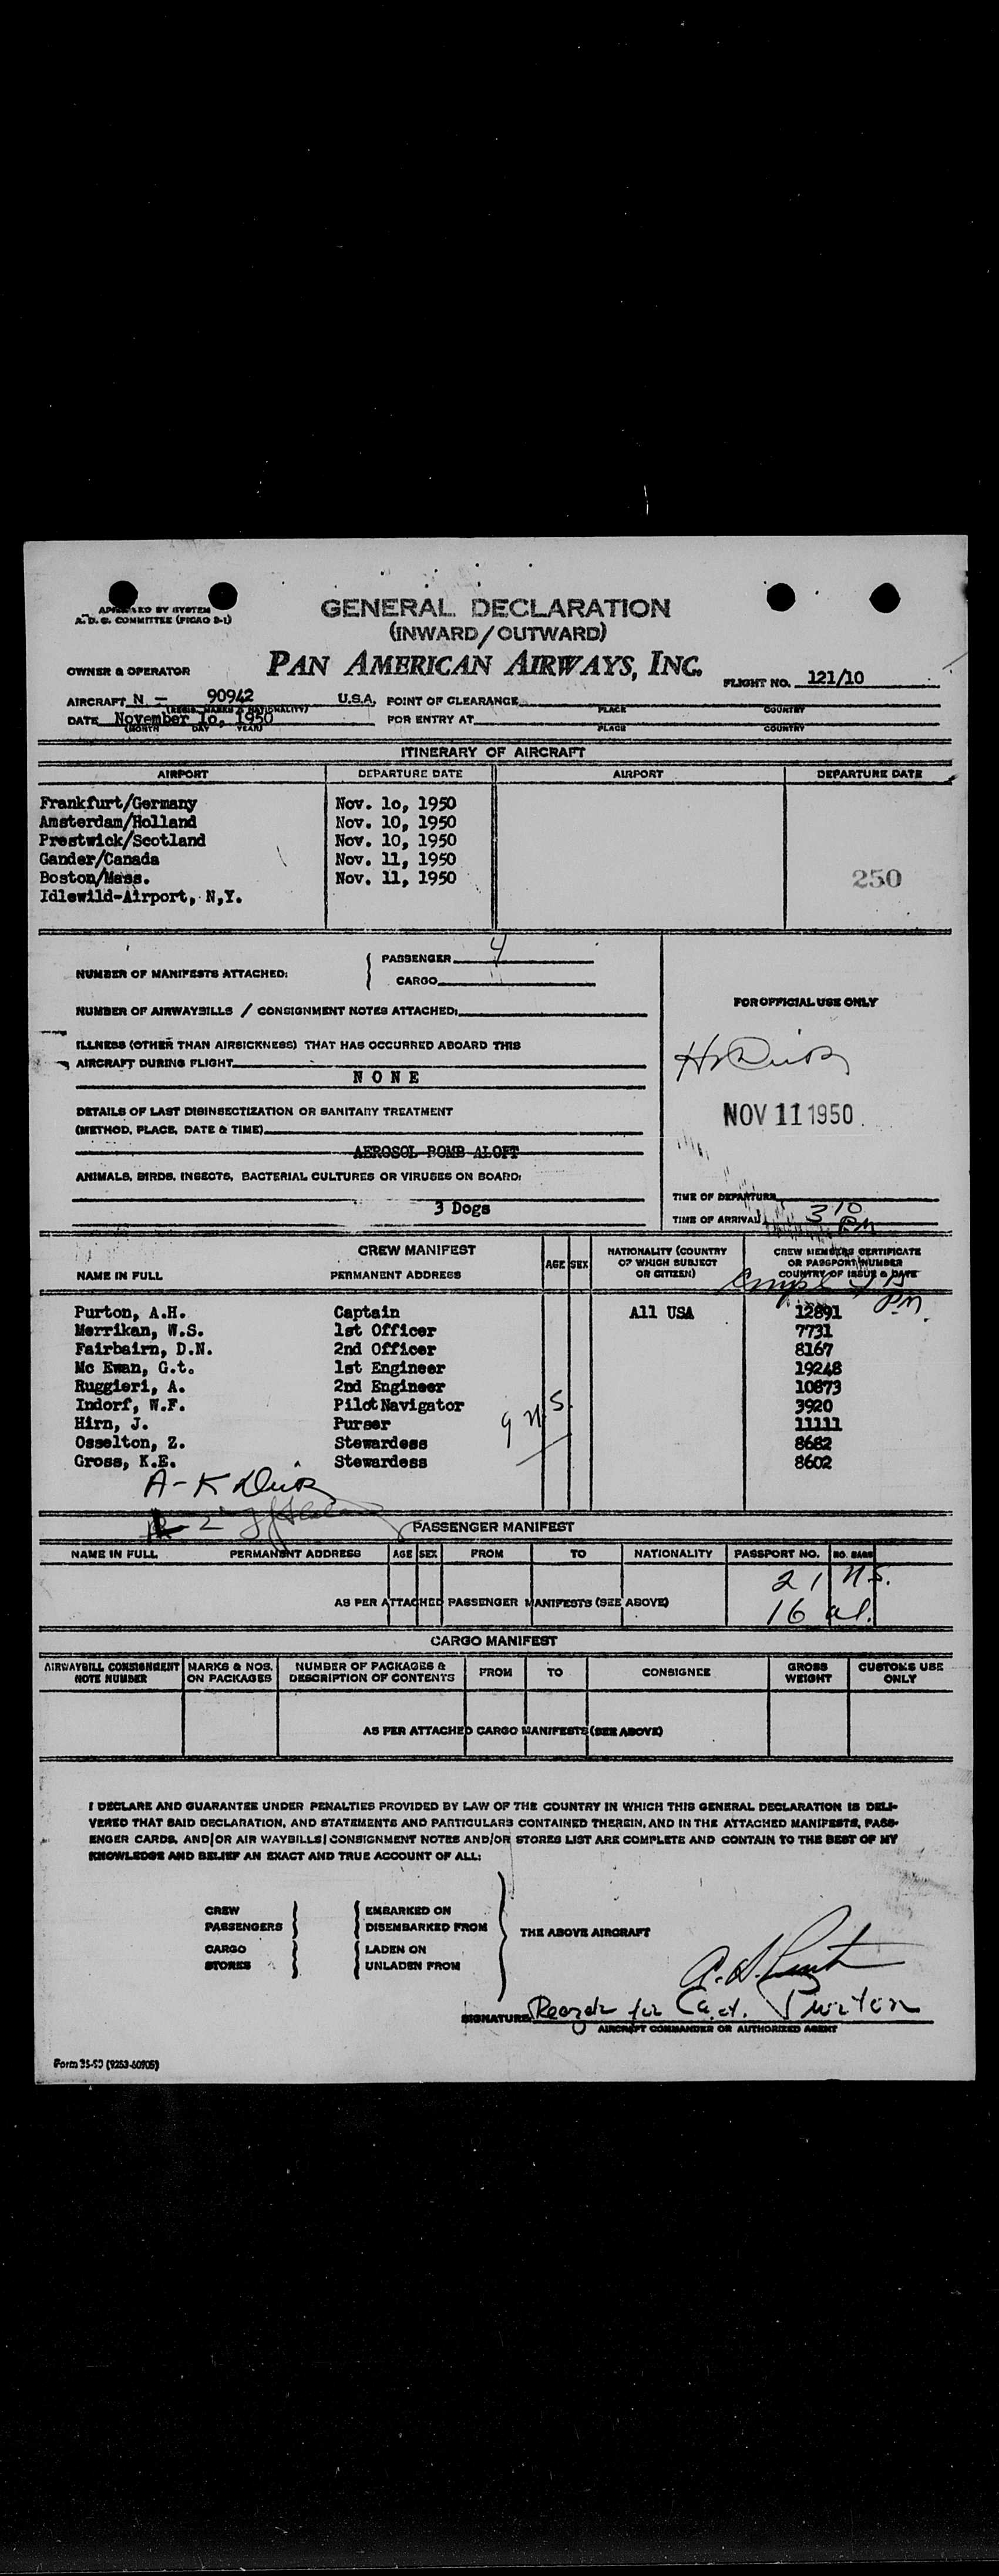 APPROVED BY SYSTEM
A. D. G. COMMITTEE (PICAO 2-1)
GENERAL DECLARATION
(INWARD/OUTWARD)
OWNER & OPERATOR PAN AMERICAN AIRWAYS, INC.
FLIGHT NO. 121/10
AIRCRAFT N - 90942 U.S.A. POINT OF CLEARANCE
(REGIS. MARKS & NATIONALITY) PLACE COUNTRY
DATE November 1o, 1950 FOR ENTRY AT
(MONTH DAY YEAR) PLACE COUNTRY
ITINERARY OF AIRCRAFT
AIRPORT DEPARTURE DATE AIRPORT DEPARTURE DATE
Frankfurt/Germany Nov. 1o, 1950
Amsterdam/Holland Nov. 10, 1950
Prestwick/Scotland Nov. 10, 1950
Gander/Canada Nov. 11, 1950
Boston/Mass. Nov. 11, 1950
250
Idlewild-Airport, N,Y.
NUMBER OF MANIFESTS ATTACHED: PASSENGER 4
CARGO
FOR OFFICIAL USE ONLY
NUMBER OF AIRWAYBILLS / CONSIGNMENT NOTES ATTACHED:
ILLNESS (OTHER THAN AIRSICKNESS) THAT HAS OCCURRED ABOARD THIS
AIRCRAFT DURING FLIGHT
NONE
DETAILS OF LAST DISINSECTIZATION OR SANITARY TREATMENT
NOV 11 1950
(METHOD, PLACE, DATE & TIME)
AEROSOL BOMB ALOFT
ANIMALS, BIRDS, INSECTS, BACTERIAL CULTURES OR VIRUSES ON BOARD:
3 Dogs
TIME OF DEPARTURE
TIME OF ARRIVAL 3 10 PM
CREW MANIFEST
NAME IN FULL PERMANENT ADDRESS AGE SEX NATIONALITY (COUNTRY OF WHICH SUBJECT OR CITIZEN) CREW MEMBERS CERTIFICATE OR PASSPORT NUMBER COUNTRY OF ISSUE & DATE
Purton, A.H. Captain All USA 12891
Merrikan, W.S. 1st Officer 7731
Fairbairn, D.N. 2nd Officer 8167
Mc Ewan, G.t. 1st Engineer 19248
Ruggieri, A. 2nd Engineer 10873
Indorf, W.F. Pilot Navigator 3920
Hirn, J. Purser 11111
Osselton, Z. Stewardess 8682
Gross, K.E. Stewardess 8602
PASSENGER MANIFEST
NAME IN FULL PERMANENT ADDRESS AGE SEX FROM TO NATIONALITY PASSPORT NO. NO. BAGS
21 us.
AS PER ATTACHED PASSENGER MANIFESTS (SEE ABOVE)
16 al.
CARGO MANIFEST
AIRWAYBILL CONSIGNMENT NOTE NUMBER MARKS & NOS. ON PACKAGES NUMBER OF PACKAGES & DESCRIPTION OF CONTENTS FROM TO CONSIGNEE GROSS WEIGHT CUSTOMS USE ONLY
AS PER ATTACHED CARGO MANIFESTS (SEE ABOVE)
I DECLARE AND GUARANTEE UNDER PENALTIES PROVIDED BY LAW OF THE COUNTRY IN WHICH THIS GENERAL DECLARATION IS DELI-
VERED THAT SAID DECLARATION, AND STATEMENTS AND PARTICULARS CONTAINED THEREIN, AND IN THE ATTACHED MANIFESTS, PASS-
ENGER CARDS, AND/OR AIR WAYBILLS/ CONSIGNMENT NOTES AND/OR STORES LIST ARE COMPLETE AND CONTAIN TO THE BEST OF MY
KNOWLEDGE AND BELIEF AN EXACT AND TRUE ACCOUNT OF ALL:
CREW EMBARKED ON
PASSENGERS DISEMBARKED FROM THE ABOVE AIRCRAFT
CARGO LADEN ON
STORES UNLADEN FROM
SIGNATURE for Capt. Purton
AIRCRAFT COMMANDER OR AUTHORIZED AGENT
Form 35-50 (9253-60905)